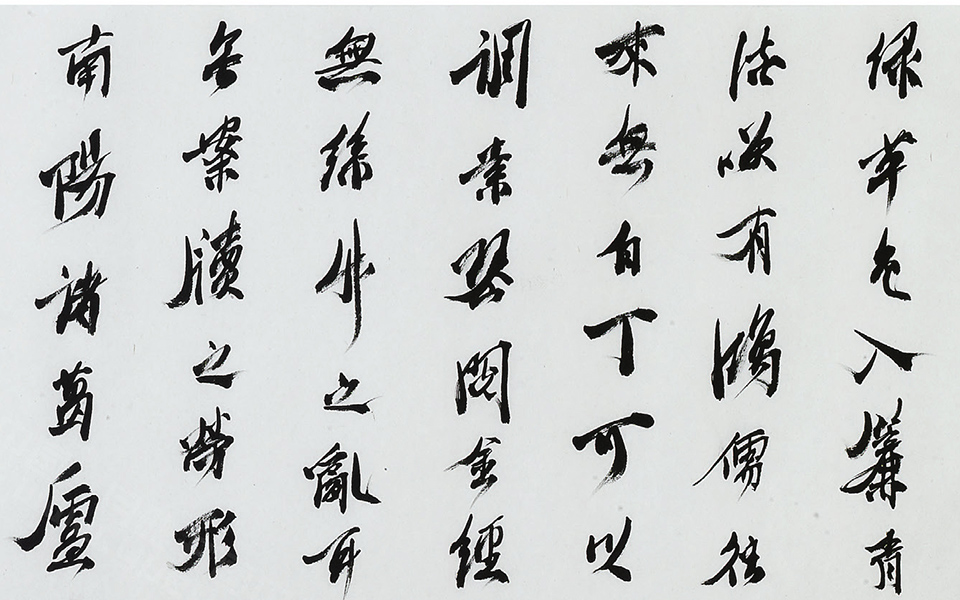 緑草色入簾青
談咲有鴻儒往
来無白丁可以
調素琴閱金經
無絲竹之亂耳
無案牘之勞形
南陽諸葛廬